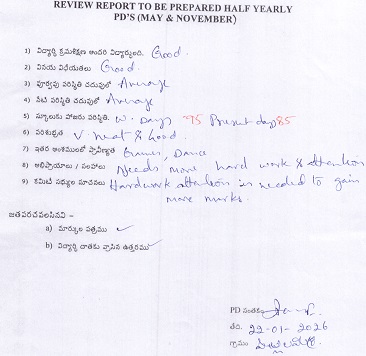 REVIEW REPORT TO BE PREPARED HALF YEARLY
PD'S (MAY & NOVEMBER)
1) విద్యార్థి క్రమశిక్షణ అందరి విద్యార్థులది. Good.
2) వినయ విధేయతలు Good.
3) పూర్వపు పరిస్థితి చదువులో Average
4) నేటి పరిస్థితి చదువులో Average
5) స్కూలుకు హాజరు పరిస్థితి. W. Days - 95 Present days 85
6) పరిశుభ్రత V. neat & Good.
7) ఇతర అంశములలో ప్రావీణ్యత Games, Dance
8) అభిప్రాయాలు / సలహాలు Needs more hard work & attention
9) కమిటీ సభ్యుల సూచనలు Hardwork attention is needed to gain
more marks.
జతపరచవలసినవి –
a) మార్కుల పత్రము ✓
b) విద్యార్థి దాతకు వ్రాసిన ఉత్తరము ✓
PD సంతకం
తేది. 22-01-2026
గ్రామం